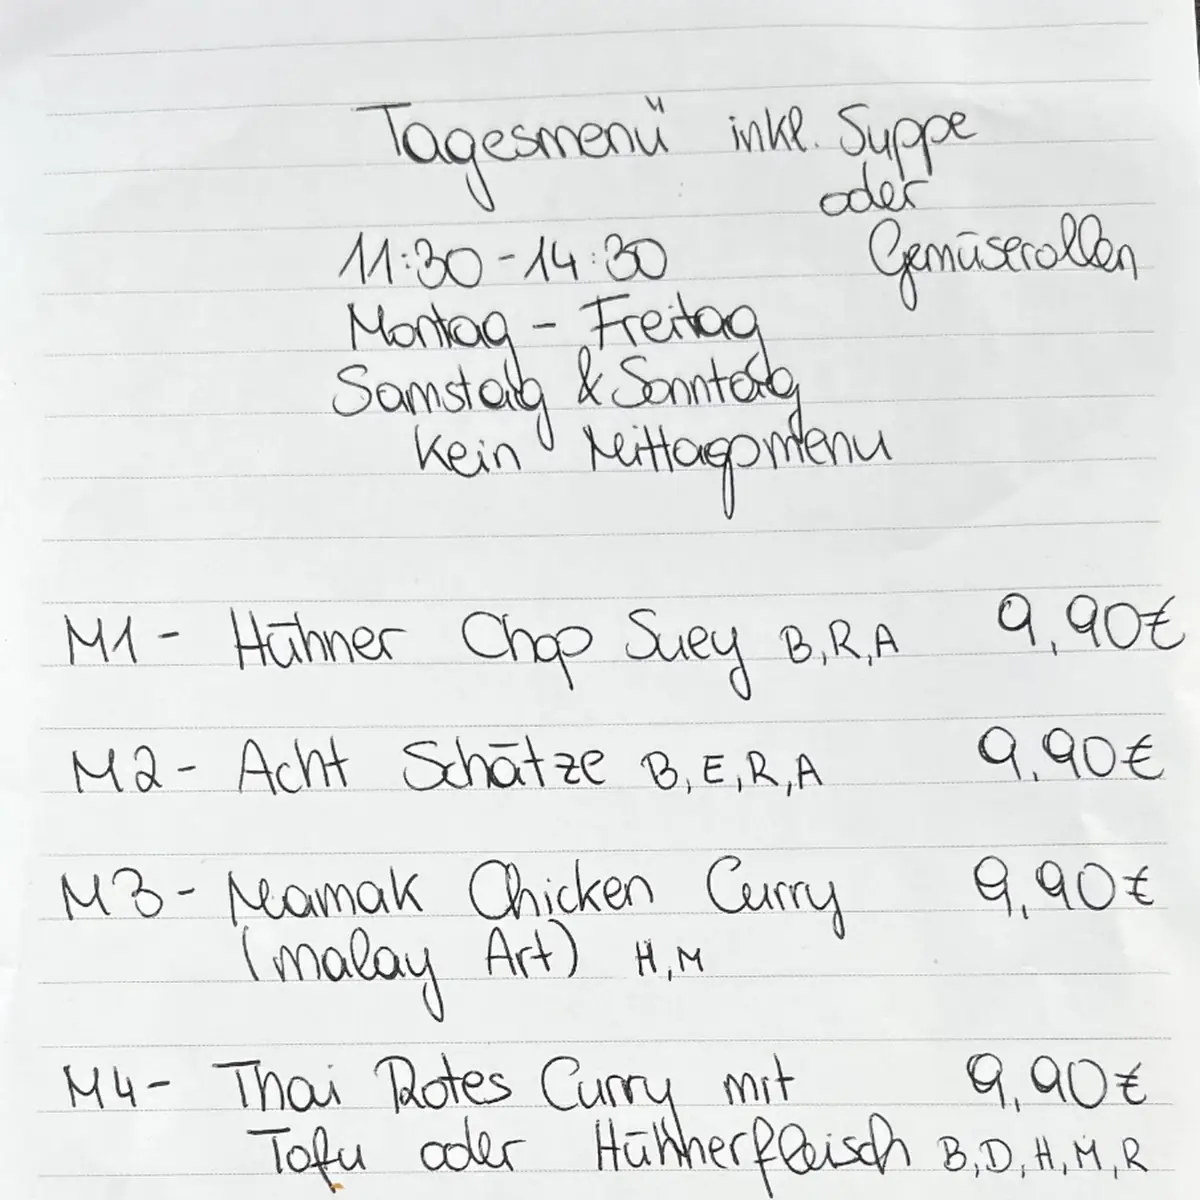 Tagesmenü inkl. Suppe
oder
Gemüserollen
11:30 - 14:30
Montag - Freitag
Samstag & Sonntag
Kein Mittagsmenu
M1 - Hühner Chop Suey B, R, A 9,90€
M2 - Acht Schätze B, E, R, A 9,90€
M3 - Mamak Chicken Curry 9,90€
(malay Art) H, M
M4 - Thai Rotes Curry mit 9,90€
Tofu oder Hühnerfleisch B, D, H, M, R